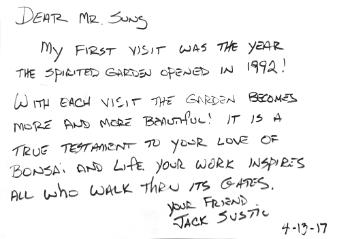 DEAR MR. SUNG
MY FIRST VISIT WAS THE YEAR
THE SPIRITED GARDEN OPENED IN 1992!
WITH EACH VISIT THE GARDEN BECOMES
MORE AND MORE BEAUTIFUL! IT IS A
TRUE TESTAMENT TO YOUR LOVE OF
BONSAI AND LIFE. YOUR WORK INSPIRES
ALL WHO WALK THRU ITS GATES.
YOUR FRIEND
JACK SUSTIC
4-13-17